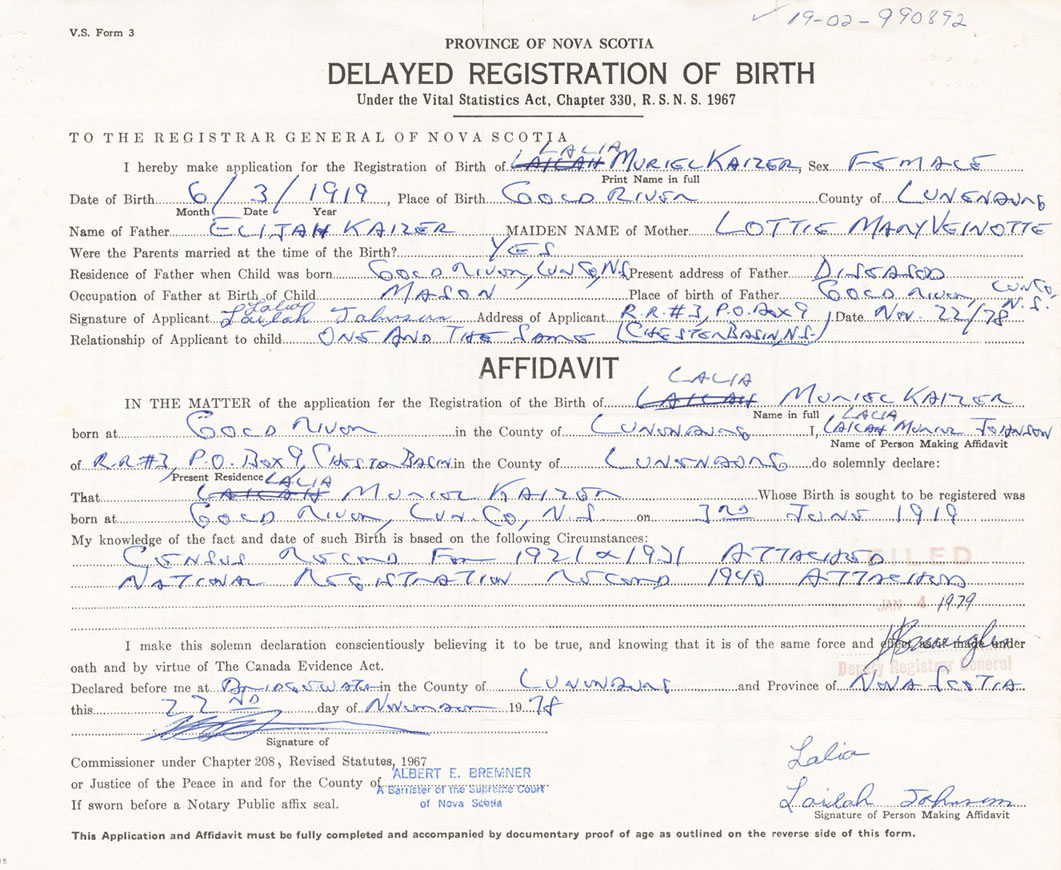 19-02-990892
V.S. Form 3
PROVINCE OF NOVA SCOTIA
DELAYED REGISTRATION OF BIRTH
Under the Vital Statistics Act, Chapter 330, R.S.N.S. 1967
TO THE REGISTRAR GENERAL OF NOVA SCOTIA
LALIA
I hereby make application for the Registration of Birth of LAILAH MURIEL KAIZER, Sex FEMALE
Print Name in full
Date of Birth 6/3/1919, Place of Birth GOLD RIVER County of LUNENBURG
Month Date Year
Name of Father ELIJAH KAIZER MAIDEN NAME of Mother LOTTIE MARY VEINOTTE
Were the Parents married at the time of the Birth? YES
Residence of Father when Child was born GOLD RIVER, LUN CO, N.S. Present address of Father DISEASED
Occupation of Father at Birth of Child MASON Place of birth of Father GOLD RIVER, LUN CO, N.S.
Lalia
Signature of Applicant Lailah Johnson Address of Applicant R.R.#3, P.O. Box 9, Date Nov. 22/78
Relationship of Applicant to child ONE AND THE SAME (CHESTER BASIN, N.S.)
AFFIDAVIT
LALIA
IN THE MATTER of the application for the Registration of the Birth of LAILAH MURIEL KAIZER
Name in full LALIA
born at GOLD RIVER in the County of LUNENBURG I, LAILAH MURIEL JOHNSON
Name of Person Making Affidavit
of R.R.#3, P.O. Box 9, CHESTER BASIN in the County of LUNENBURG do solemnly declare:
Present Residence LALIA
That LAILAH MURIEL KAIZER Whose Birth is sought to be registered was
born at GOLD RIVER, LUN. CO, N.S on 3RD JUNE 1919
My knowledge of the fact and date of such Birth is based on the following Circumstances:
CENSUS RECORD FOR 1921 & 1931 ATTACHED
FILED
NATIONAL REGISTRATION RECORD 1940 ATTACHED
JAN 4 1979
I make this solemn declaration conscientiously believing it to be true, and knowing that it is of the same force and effect as if made under
oath and by virtue of The Canada Evidence Act.
Deputy Registrar General
Declared before me at BRIDGEWATER in the County of LUNENBURG and Province of NOVA SCOTIA
this 22ND day of NOVEMBER 1978
Signature of
Commissioner under Chapter 208, Revised Statutes, 1967
or Justice of the Peace in and for the County of
If sworn before a Notary Public affix seal.
ALBERT E. BREMNER
A Barrister of the Supreme Court
of Nova Scotia
Lalia
Lailah Johnson
Signature of Person Making Affidavit
This Application and Affidavit must be fully completed and accompanied by documentary proof of age as outlined on the reverse side of this form.